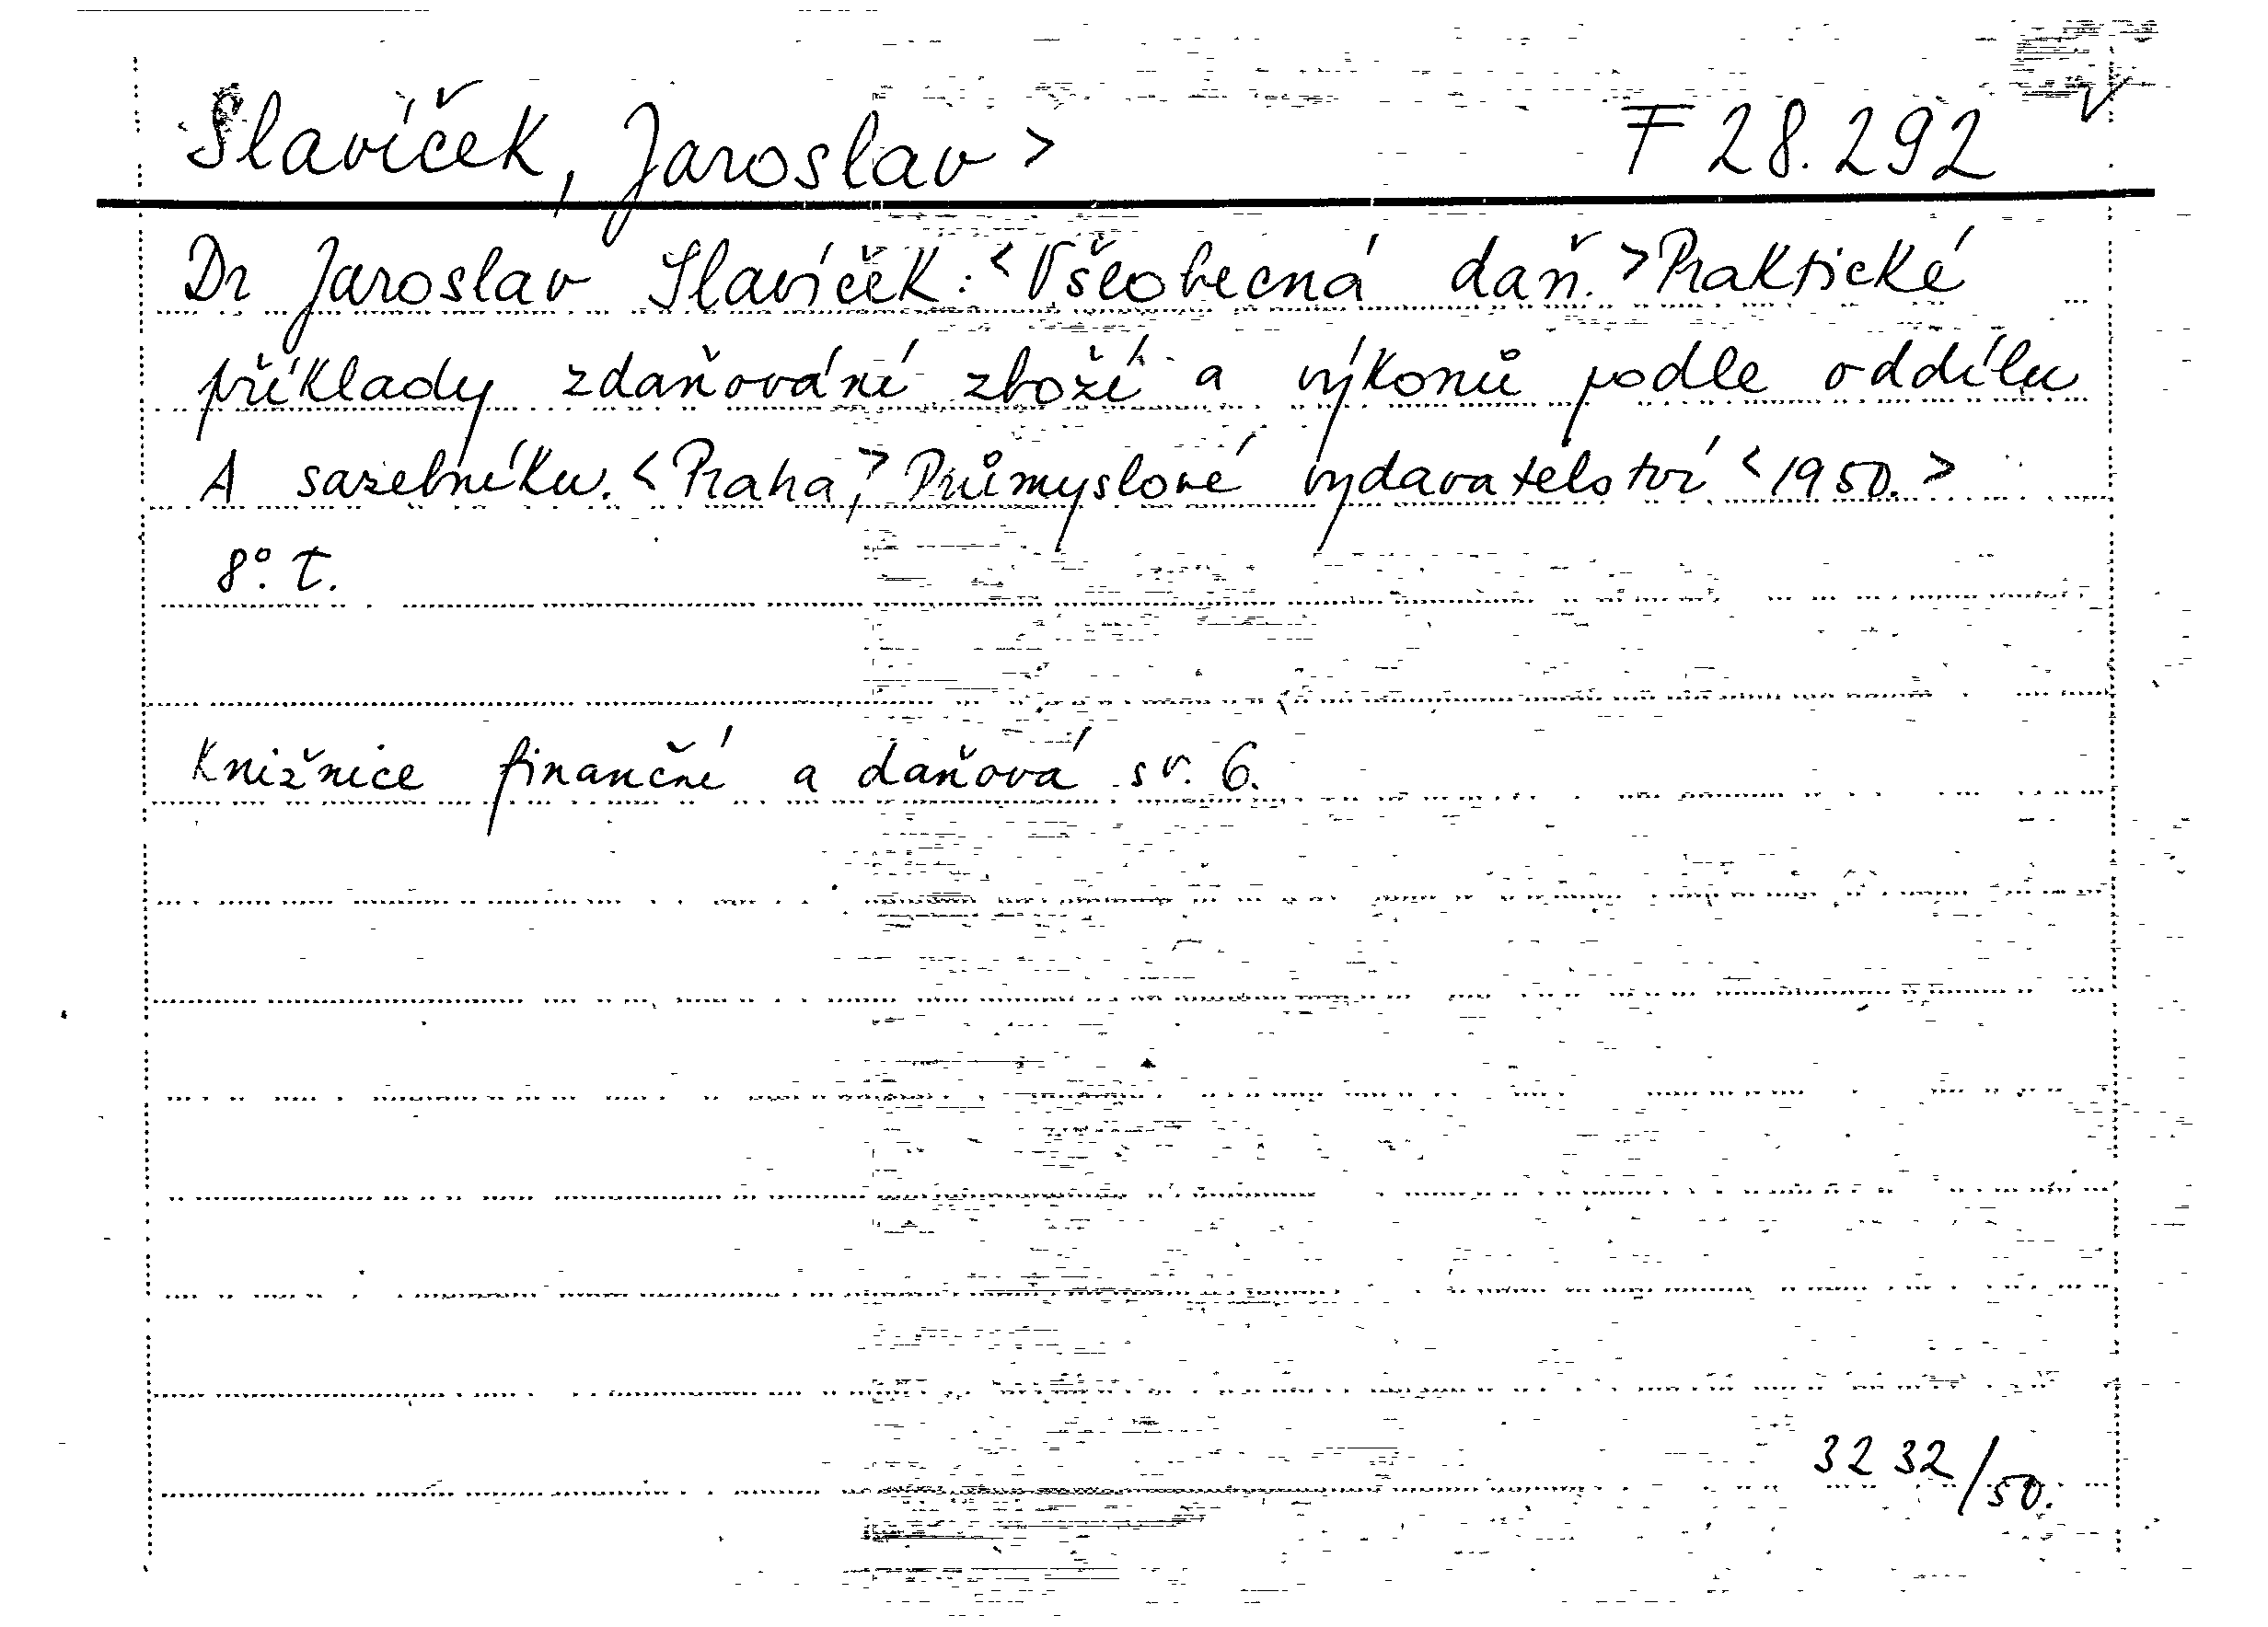 Slavíček, Jaroslav > F 28.292
Dr Jaroslav Slavíček: <Všeobecná daň.> Praktické
příklady zdaňování zboží a výkonů podle oddílu
A sazebníku. <Praha,> Průmyslové vydavatelství <1950.>
8°. T.
Knižnice finanční a daňová sv. 6.
3232/50.